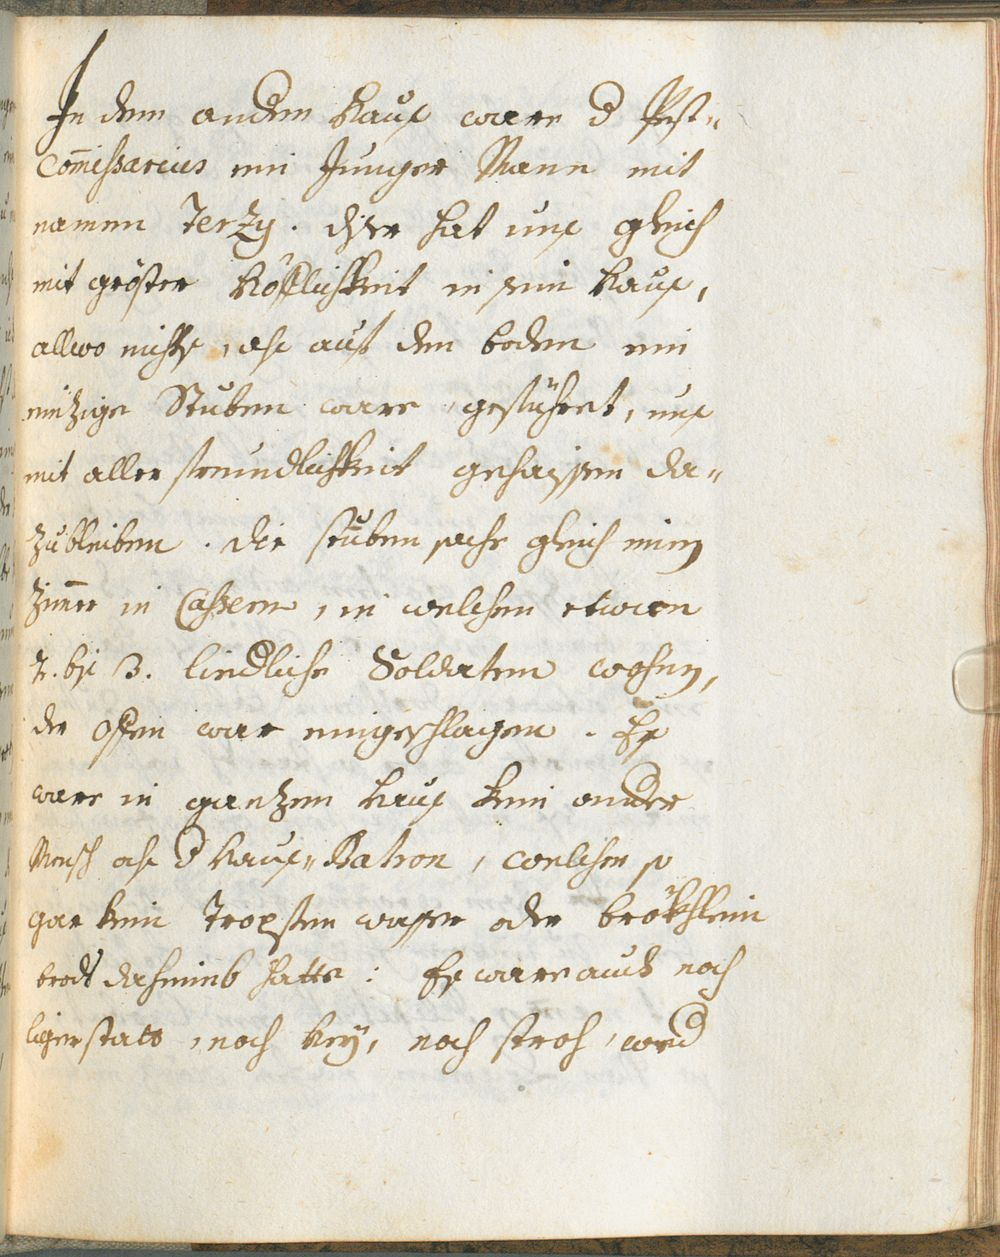 In dem andern Hauß ware d Pest-
Com̄issarius ein Junger Mann mit
namen Terzy. diser hat unß gleich
mit gröster Höfflichkeit in sein Hauß,
allwo nichts, alß auf dem boden ein
eintzige Stuben ware, geführet, unß
mit aller freundlichkeit gehaissen da-
zubleiben. die stuben sahe gleich einem
Zim̄er in Cassern, in welchen etwan
2. biß 3. liedliche Soldaten wohnen,
der Offen war eingeschlagen. Eß
ware in gantzem Hauß kein ander
Mensch alß d Hauß-Patron, welcher so
gar kein Tropffen wasser oder brökhlein
brodt daheimb hatte: Eß ware auch noch
ligerstatt, noch Heÿ, noch stroh, wed